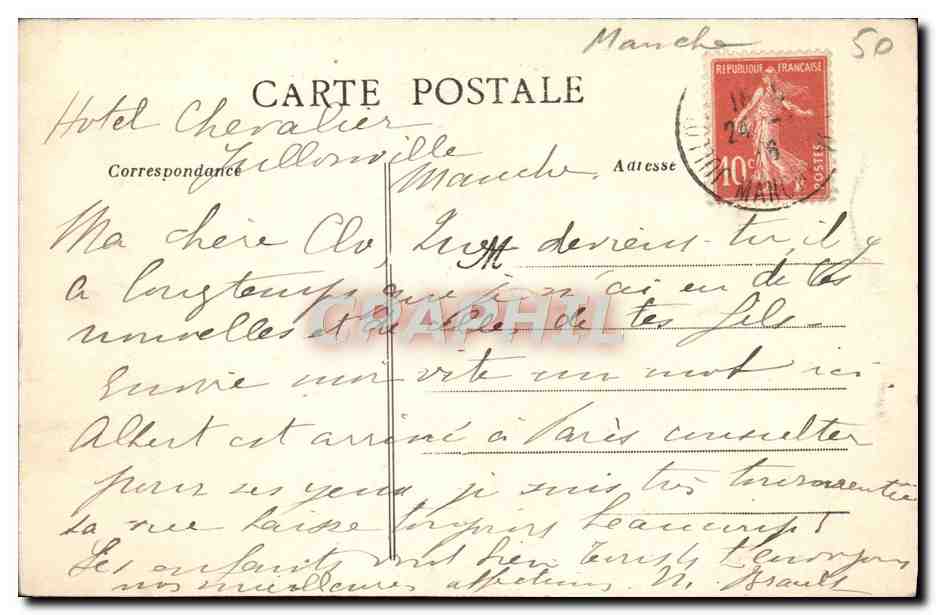 Manche 50
REPUBLIQUE FRANÇAISE
10c
POSTES
24
6
MANCHE
CARTE POSTALE
Hotel Chevalier
Jullouville
Manche
Correspondance
Adresse
Ma chère Clo, Que deviens-tu, il y
a longtemps que je n'ai eu de tes
nouvelles et de celles de tes fils.
Envoie moi vite un mot ici.
Albert est arrivé à Paris consulter
pour ses yeux, je suis très tourmentée
sa vue baisse toujours beaucoup!
Les enfants vont bien t'envoyons
nos meilleures affections M.
CPAPHIL